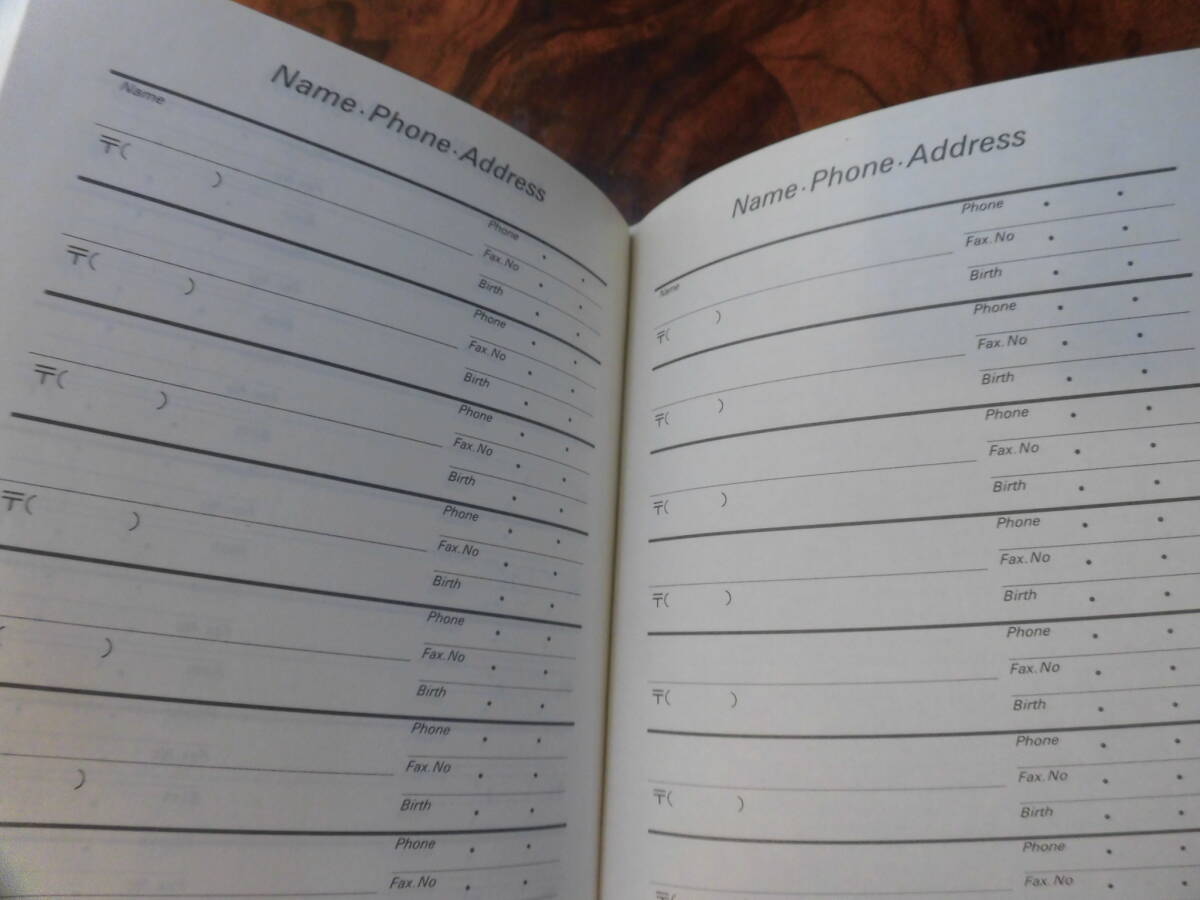 Name・Phone・Address
Name
Phone
〒( )
Fax.No
Birth
Phone
〒( )
Fax.No
Birth
Phone
〒( )
Fax.No
Birth
Phone
〒( )
Fax.No
Birth
Phone
( )
Fax.No
Birth
Phone
)
Fax.No
Birth
Phone
Fax.No
Name・Phone・Address
Name
Phone
Fax.No
〒( )
Birth
Phone
Fax.No
〒( )
Birth
Phone
Fax.No
〒( )
Birth
Phone
Fax.No
〒( )
Birth
Phone
Fax.No
〒( )
Birth
Phone
Fax.No
〒( )
Birth
Phone
Fax.No
〒(